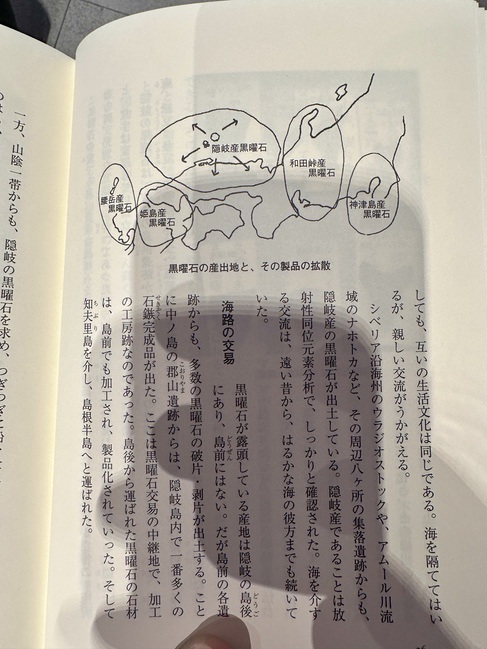 隠岐産黒曜石
和田峠産
黒曜石
神津島産
黒曜石
腰岳産
黒曜石
姫島産
黒曜石
黒曜石の産出地と、その製品の拡散
しても、互いの生活文化は同じである。海を隔ててはい
るが、親しい交流がうかがえる。
シベリア沿海州のウラジオストックや、アムール川流
域のナホトカなど、その周辺八ヶ所の集落遺跡からも、
隠岐産の黒曜石が出土している。隠岐産であることは放
射性同位元素分析で、しっかりと確認された。海を介す
る交流は、遠い昔から、はるかな海の彼方までも続いて
いた。
海路の交易
黒曜石が露頭している産地は隠岐の島後
どうご
にあり、島前にはない。だが島前の各遺
どうぜん
跡からも、多数の黒曜石の破片・剥片が出土する。こと
に中ノ島の郡山遺跡からは、隠岐島内で一番多くの
こおりやま
石鏃完成品が出た。ここは黒曜石交易の中継地で、加工
せきぞく
の工房跡なのであった。島後から運ばれた黒曜石の石材
は、島前でも加工され、製品化されていった。そして
知夫里島を介し、島根半島へと運ばれた。
ちぶり
一方、山陰一帯からも、隠岐の黒曜石を求め、つぎつぎに